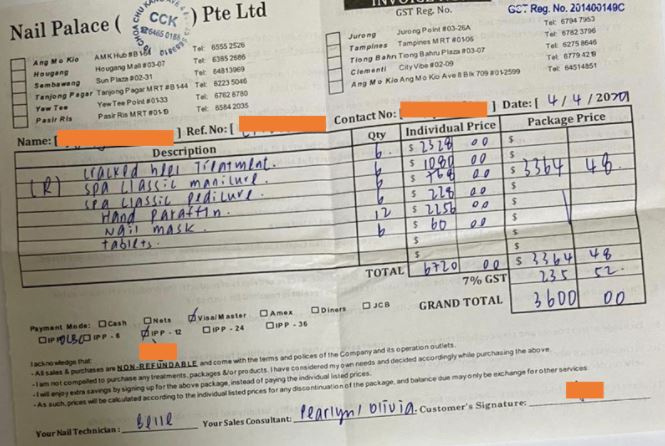 Nail Palace ( ) Pte Ltd
CHOA CHU KANG
CCK
GST Reg. No.
GST Reg. No. 201400149C
Ang Mo Kio AMK Hub #B1 Tel: 6555 2526
Hougang Hougang Mall #03-07 Tel: 6385 2686
Sembawang Sun Plaza #02-31 Tel: 6481 3969
Tanjong Pagar Tanjong Pagar MRT #B1-44 Tel: 6223 5046
Yew Tee Yew Tee Point #01-33 Tel: 6762 8780
Pasir Ris Pasir Ris MRT #01-10 Tel: 6584 2035
Jurong Jurong Point #03-26A Tel: 6794 7953
Tampines Tampines MRT #01-06 Tel: 6782 3796
Tiong Bahru Tiong Bahru Plaza #03-07 Tel: 6275 8646
Clementi City Vibe #02-09 Tel: 6779 4218
Ang Mo Kio Ang Mo Kio Ave 8 Blk 709 #01-2599 Tel: 64514851
Name: [ ] Ref.No: [ Contact No: [ ] Date: [ 4/4/
Description Qty Individual Price Package Price
cracked heel Treatment. 6 $ 2328 00 $
(R) spa classic manicure. 6 $ 1080 00 $ 3364 48
spa classic pedicure. 6 $ 768 00 $
Hand Paraffin. 6 $ 228 00 $
Nail mask. 12 $ 2256 00 $
tablets. 6 $ 60 00 $
$ $
TOTAL 6720 00 $ 3364 48
7% GST 235 52
GRAND TOTAL 3600 00
Payment Mode: Cash Nets Visa/Master Amex Diners JCB
IPP - 6 IPP - 12 IPP - 24 IPP - 36
I acknowledge that:
- All sales & purchases are NON-REFUNDABLE and come with the terms and polices of the Company and its operation outlets.
- I am not compelled to purchase any treatments, packages &/or products. I have considered my own needs and decided accordingly while purchasing the above.
- I will enjoy extra savings by signing up for the above package, instead of paying the individual listed prices.
- As such, prices will be calculated according to the individual listed prices for any discontinuation of the package, and balance due may only be exchange for other services
Your Nail Technician: Belle Your Sales Consultant: Pearlyn/Olivia. Customer's Signature: